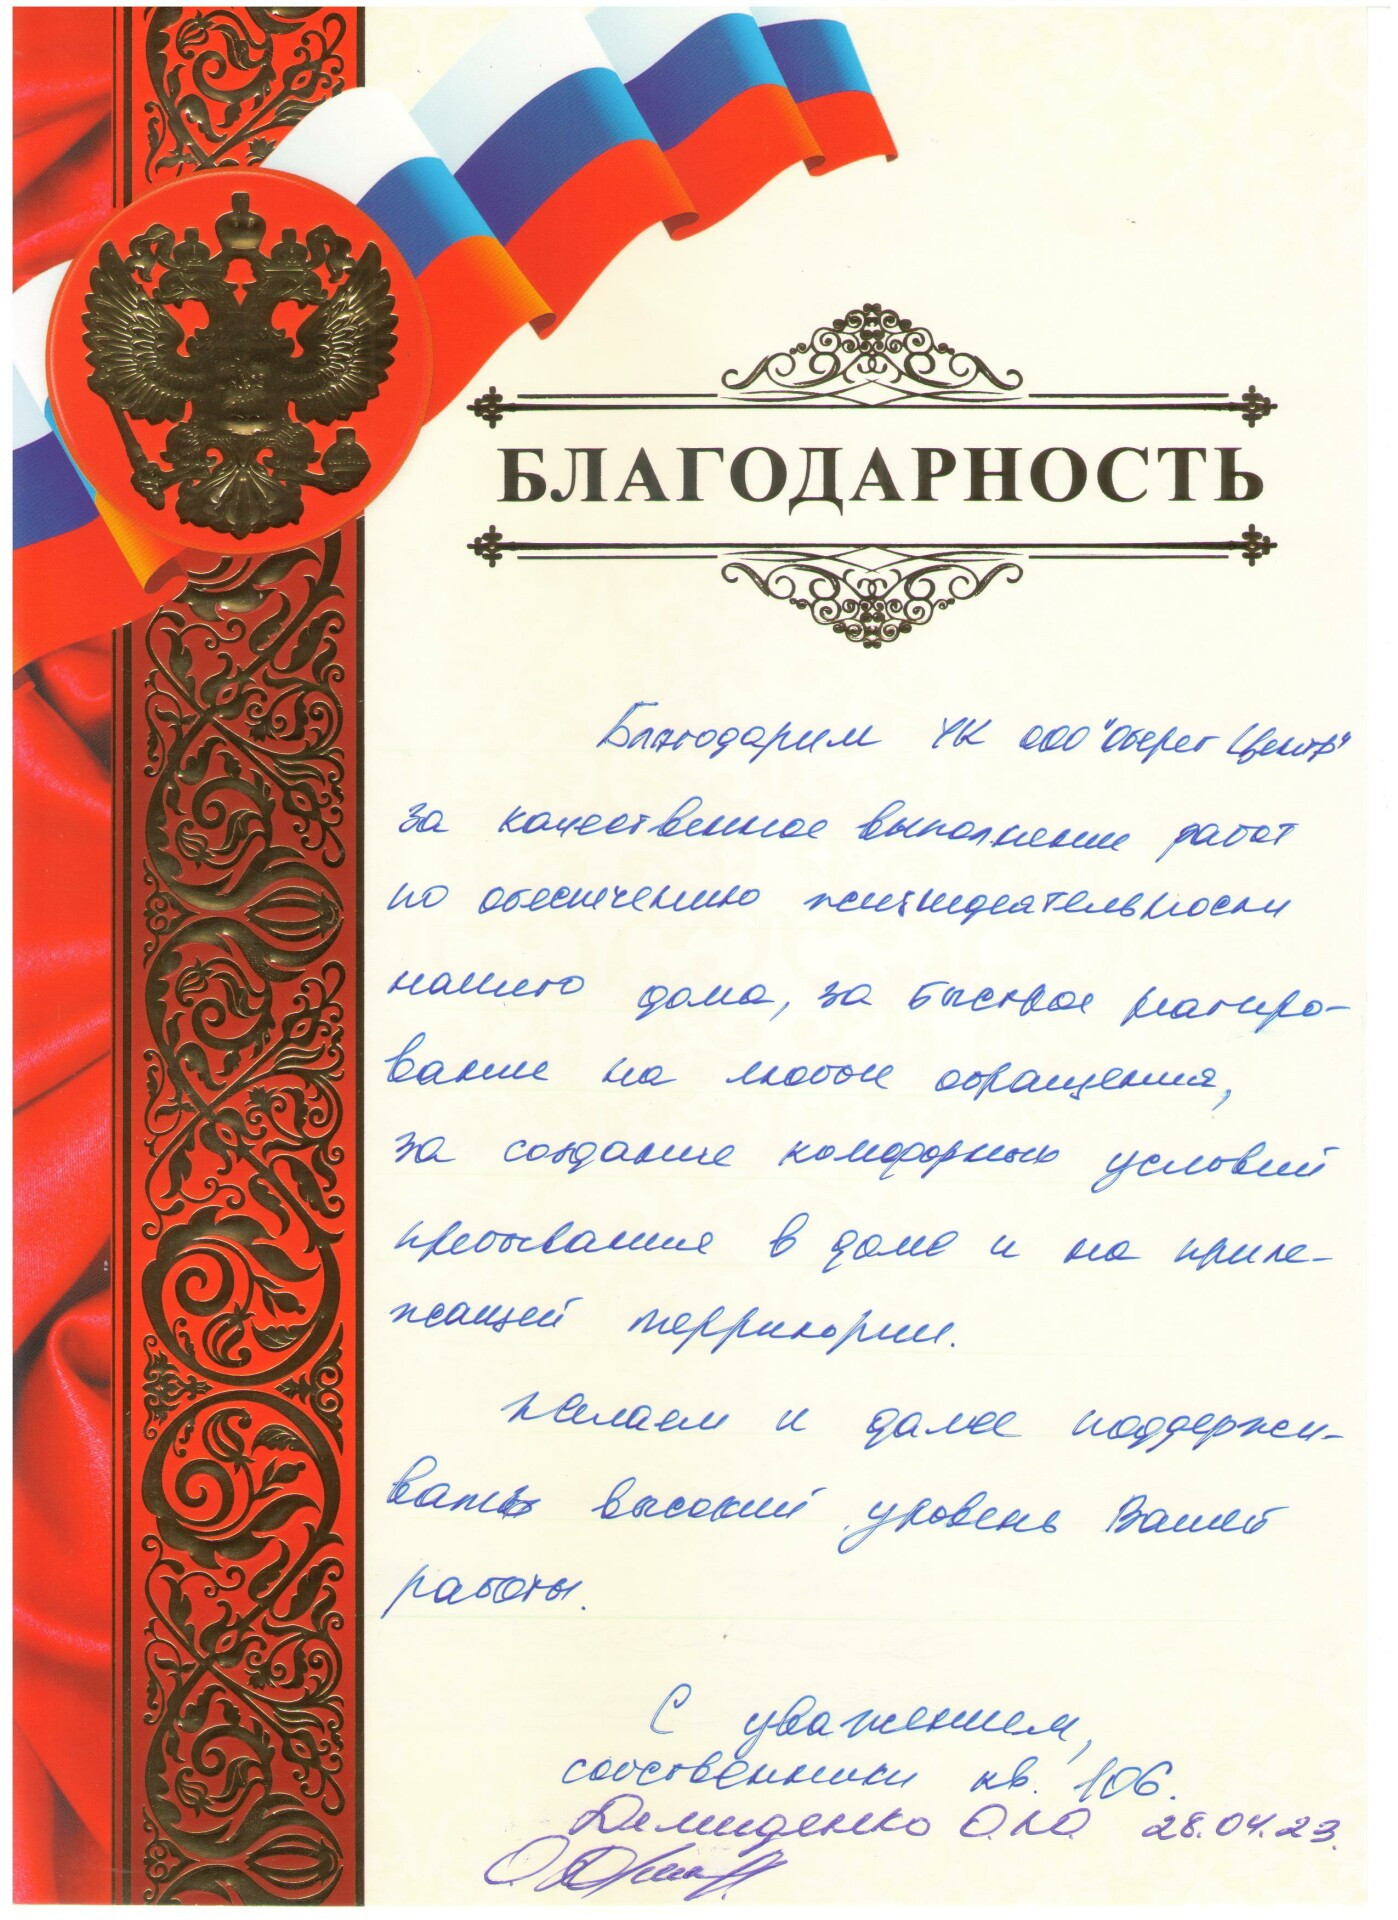 БЛАГОДАРНОСТЬ
Благодарим УК ООО "Оберег Центр"
за качественное выполнение работ
по обеспечению жизнедеятельности
нашего дома, за быстрое реагиро-
вание на любые обращения,
за создание комфорных условий
пребывания в доме и на приле-
жащей территории.
Желаем и далее поддержи-
вать высокий уровень Вашей
работы.
С уважением,
собственники кв. 106.
Демиденко О.Ю. 28.04.23.